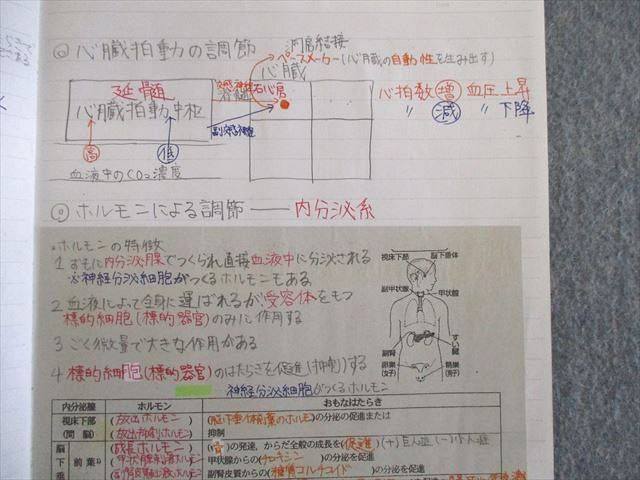 ◎ 心臓拍動の調節
洞房結節
ペースメーカー(心臓の自動性を生み出す)
心臓
延髄
心臓拍動中枢
交感神経
右心房
副交感神経
高
低
血液中のCO₂濃度
心拍数 増 血圧上昇
〃 減 〃 下降
◎ ホルモンによる調節 ── 内分泌系
・ホルモンの特徴
1 おもに内分泌腺でつくられ直接血液中に分泌される
※神経分泌細胞がつくるホルモンもある
2 血液によって全身に運ばれるが受容体をもつ
標的細胞(標的器官)のみに作用する
3 ごく微量で大きな作用がある
4 標的細胞(標的器官)のはたらきを促進(抑制)する
神経分泌細胞がつくるホルモン
視床下部
脳下垂体
副甲状腺
甲状腺
副腎
すい臓
卵巣
(女子)
精巣
(男子)
内分泌腺 ホルモン おもなはたらき
視床下部 (放出ホルモン) (脳下垂体前葉のホルモン)の分泌の促進または
(間脳) (放出抑制ホルモン) 抑制
脳下垂 前葉 (成長ホルモン) (骨)の発達，からだ全般の成長を(促進) (+)巨人症 (−)小人症
(甲状腺刺激ホルモン) 甲状腺からの(チロキシン)の分泌を促進
(副腎皮質刺激ホルモン) 副腎皮質からの(糖質コルチコイド)の分泌を促進